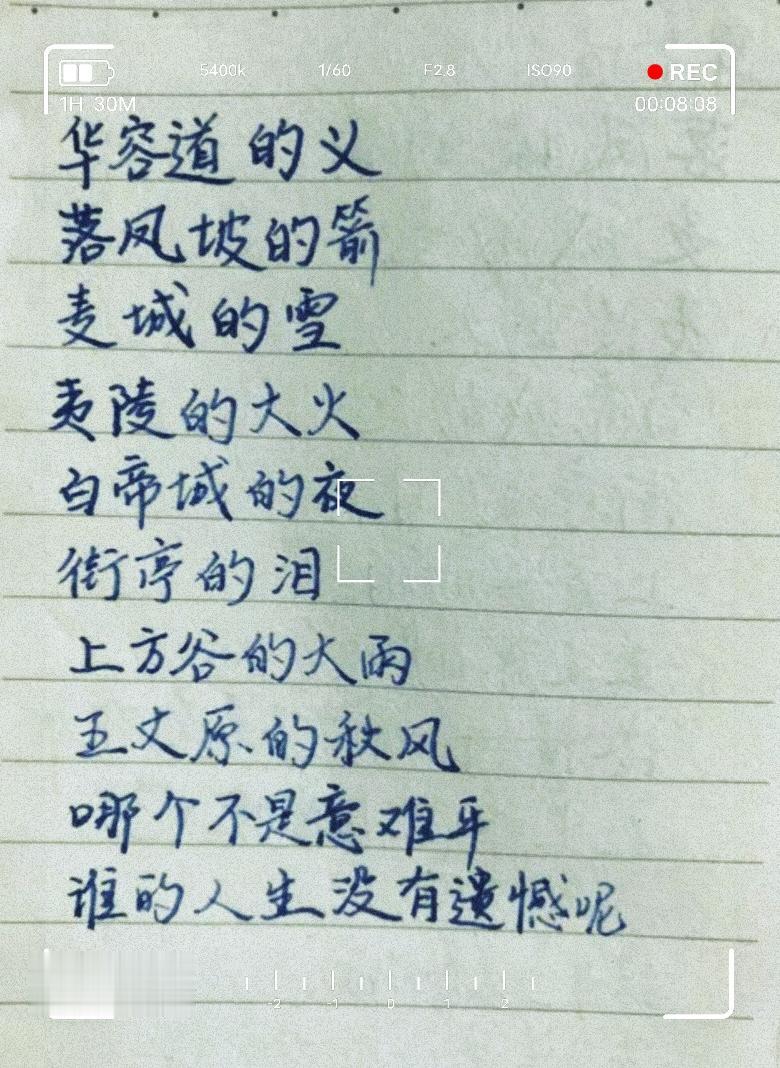 5400k 1/60 F2.8 ISO90 REC
1H 30M 00:08:08
华容道的义
落凤坡的箭
麦城的雪
夷陵的大火
白帝城的夜
街亭的泪
上方谷的大雨
五丈原的秋风
哪个不是意难平
谁的人生没有遗憾呢
-2 -1 0 1 2